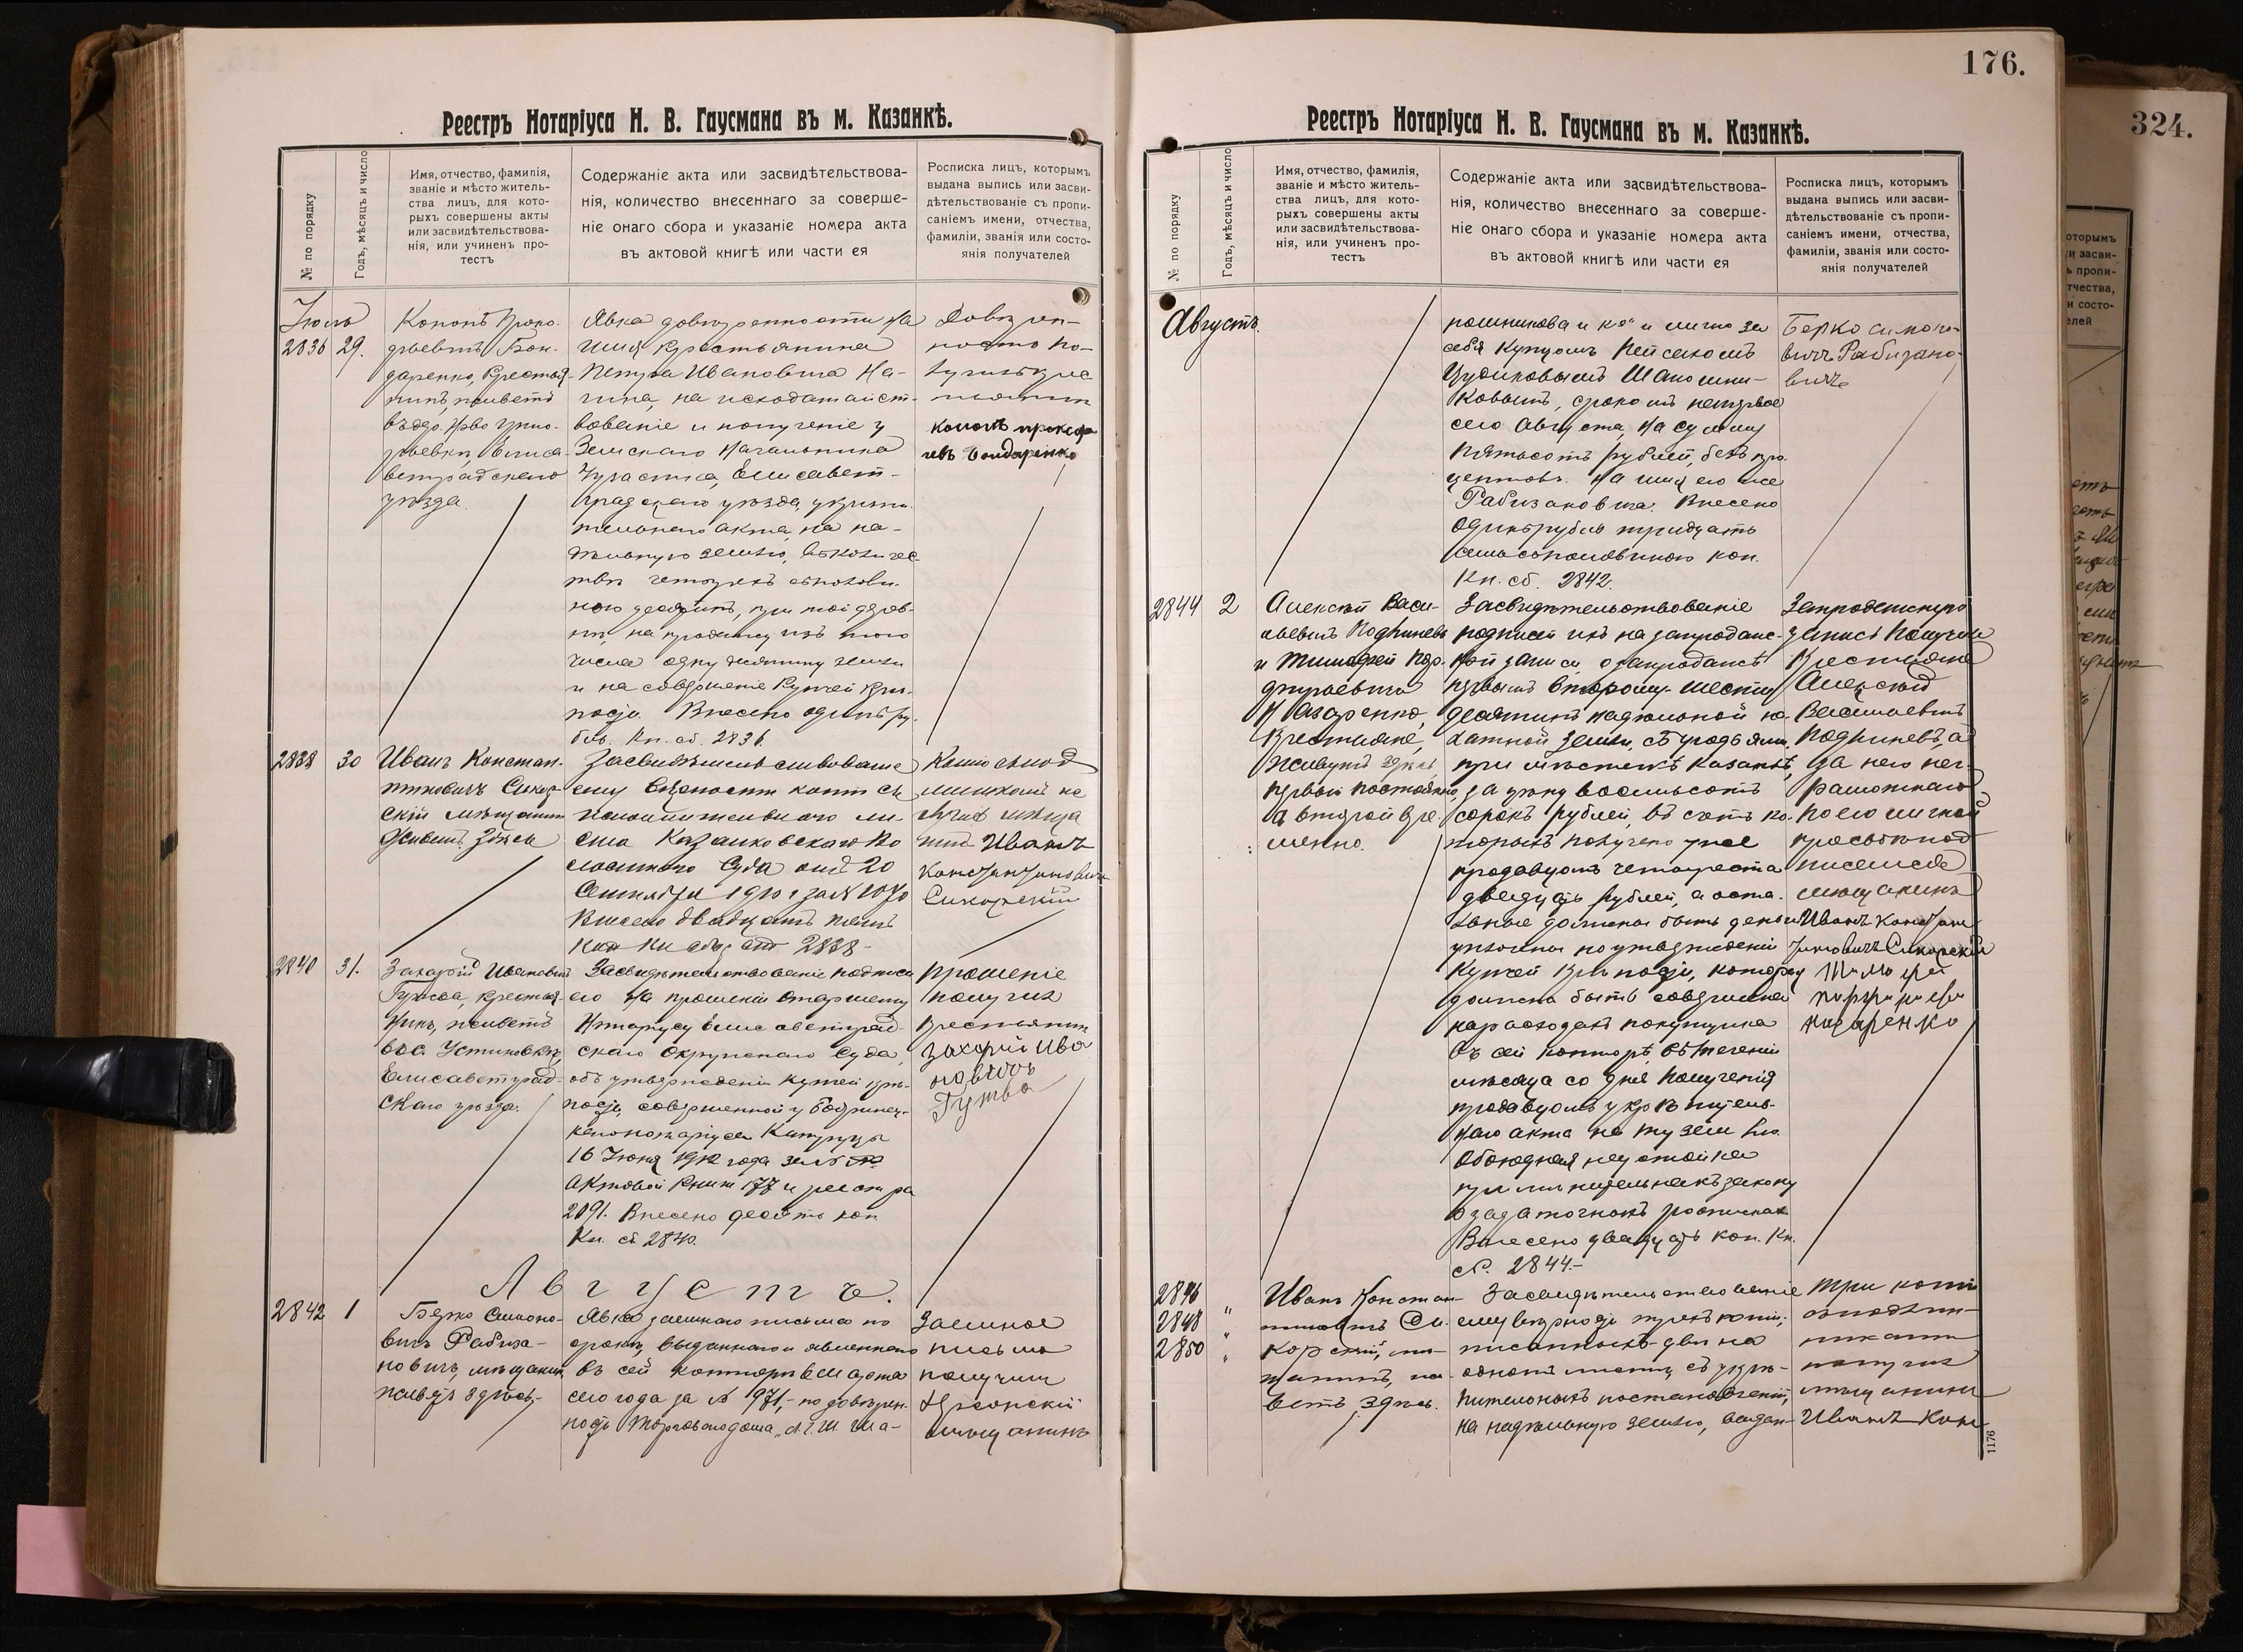 Реестръ Нотаріуса Н. В. Гаусмана въ м. Казанкѣ.
№ по порядку
Годъ, мѣсяцъ и число
Имя, отчество, фамилія,
званіе и мѣсто житель-
ства лицъ, для кото-
рыхъ совершены акты
или засвидѣтельствова-
нія, или учиненъ про-
тестъ
Содержаніе акта или засвидѣтельствова-
нія, количество внесеннаго за соверше-
ніе онаго сбора и указаніе номера акта
въ актовой книгѣ или части ея
Росписка лицъ, которымъ
выдана выпись или засви-
дѣтельствованіе съ пропи-
саніемъ имени, отчества,
фамиліи, званія или состо-
янія получателей
Іюль
2836 29.
Кононъ Проко-
фьевичъ Бон-
даренко, крестья-
нинъ, живетъ
въ дер. Ново Григо-
рьевкѣ, Елиса-
ветградскаго
уѣзда.
Явка довѣренности на
имя крестьянина
Петра Ивановича На-
гина, на исходатайст-
вованіе и полученіе у
Земскаго Начальника
участка, Елисавет-
градскаго уѣзда, укрѣпи-
тельнаго акта на на-
дѣльную землю, въ количес-
твѣ четырехъ съ полови-
ною десятинъ, при той дерев-
нѣ, на продажу изъ того
числа одну десятину земли
и на совершеніе купчей крѣ-
пости. Внесено одинъ ру-
бль. Кн. сб. 2836.
Довѣрен-
ность по-
лучилъ крес-
тьянин
кононъ прокофь
евъ бондаренко
2838 30
Иванъ Констан-
тиновичъ Сикор-
скій мѣщанинъ
живетъ здѣсь
Засвидѣтельствованіе
ему вѣрности копіи съ
исполнительнаго ли-
ста Казанковскаго Во
лостного Суда отъ 20
Сентября 1910 г за № 1070
Внесено двадцать пять
коп Кн сбор ст 2838-
Копію съ под
линникомъ по
лучилъ мѣща
нинъ Иванъ
Константиновичъ
Сикорскій
2840 31.
Захарій Ивановичъ
Гутва, крестья-
нинъ, живетъ
въ с. Устиновкѣ,
Елисаветград-
скаго уѣзда.
Засвидѣтельствованіе подписи
его на прошеніи Старшему
Нотаріусу Елисаветград-
скаго Окружнаго Суда,
объ утвержденіи купчей крѣ-
пости, совершенной у Бобринец-
каго нотаріуса
16 Іюня 1912 года за №
актовой книги 177 и реестра
2091. Внесено десять коп
Кн. сб. 2840.
прошеніе
получилъ
крестьянин
захарій Ива
новичъ
Гутва
Августъ.
2842 1
Берко Симоно-
вичъ Рабиза-
новичъ, мѣщанинъ
живетъ здѣсь-
Явка заемнаго письма по
сроку, выданнаго и явленнаго
въ сей конторѣ 8 Марта
сего года за № 971,- по довѣрен-
ности Торговаго дома „
Заемное
письмо
получилъ
Херсонскій
мѣщанинъ
176.
Реестръ Нотаріуса Н. В. Гаусмана въ м. Казанкѣ.
№ по порядку
Годъ, мѣсяцъ и число
Имя, отчество, фамилія,
званіе и мѣсто житель-
ства лицъ, для кото-
рыхъ совершены акты
или засвидѣтельствова-
нія, или учиненъ про-
тестъ
Содержаніе акта или засвидѣтельствова-
нія, количество внесеннаго за соверше-
ніе онаго сбора и указаніе номера акта
въ актовой книгѣ или части ея
Росписка лицъ, которымъ
выдана выпись или засви-
дѣтельствованіе съ пропи-
саніемъ имени, отчества,
фамиліи, званія или состо-
янія получателей
Августъ.
пошникова и Ко" и лично за
себя Купцомъ Пейсахомъ
Шапошни-
ковымъ, срокомъ на первое
сего Августа, на сумму
пятьсотъ рублей, безъ про-
центовъ. на имя его же
Рабизановича. Внесено
одинъ рубль тридцать
семь съ половиною коп.
Кн. сб. 2842.
Берко симоно-
вичъ Рабизано-
вичъ
2844 2
Алексѣй Васи-
льевичъ Подпиневъ
и Тимофей Пор-
фирьевичъ
Назаренко,
Крестьяне,
живутъ здѣсь,
первый постоянно,
а второй вре-
менно.
Засвидѣтельствованіе
подписей ихъ на запродаж-
ной записи о запродажѣ
первымъ второму шести
десятинъ надѣльной ха-
хатной земли, съ угодьями,
при мѣстечкѣ Казанкѣ,
за цѣну восемьсотъ
сорокъ рублей, въ счетъ ко-
торыхъ получено уже
продавцомъ четыреста
двадцать рублей, а оста-
льные должны быть деньги
уплочены по утвержденіи
купчей крѣпости, которая
должна быть совершена
на расходахъ покупщика
въ сей конторѣ, въ теченіи
мѣсяца со дня полученія
продавцомъ укрѣпитель-
наго акта на ту землю.
Обоюдная неустойка
примѣнительна къ закону
о задаточныхъ роспискахъ
Внесено двадцать коп. Кн.
сб. 2844.-
Запродажную
запись получили
Крестьяне
Алексѣй
Васильевичъ
Подпиневъ, а
за него не-
грамотнаго
по его личной
просьбѣ под
писался
мѣщанинъ
Иванъ Констан
тиновичъ Сикорскій
Тимофей
порфирьевъ
назаренко
2846
2848 "
2850 "
Иванъ Констан-
тиновичъ Си-
корскій, мѣ-
щанинъ, жи-
ветъ здѣсь.
Засвидѣтельствованіе
ему вѣрности трехъ копій,
писанныхъ двѣ на
одномъ листѣ, съ укрѣ-
пительныхъ постановленій,
на надѣльную землю, выдан-
Три копіи
съ подлин-
никами
получилъ
мѣщанинъ
Иванъ Конс
1176
324.